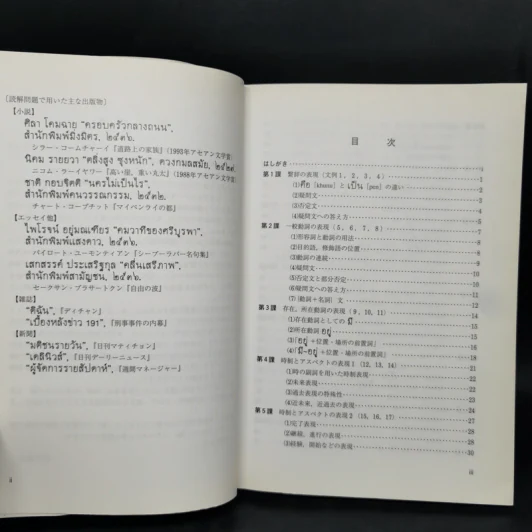 〔読解問題で用いた主な出版物〕
【小説】
ศิลา โคมฉาย "ครอบครัวกลางถนน",
สำนักพิมพ์มิ่งมิตร, ๒๕๓๖.
シラー・コームチャーイ『道路上の家族』(1993年アセアン文学賞)
นิคม รายยวา "ตลิ่งสูง ซุงหนัก", ดวงกมลสมัย,
ニコム・ラーイヤワー『高い崖、重い丸太』(1988年アセアン文学賞)
ชาติ กอบจิตติ "นครไม่เป็นไร",
สำนักพิมพ์คนวรรณกรรม, ๒๕๓๒.
チャート・コープチット『マイペンライの都』
【エッセイ他】
ไพโรจน์ อยู่มณเฑียร "คมวาทีของศรีบูรพา",
สำนักพิมพ์แสงดาว, ๒๕๓๖.
パイロート・ユーモンティアン『シーブーラパー名句集』
เสกสรรค์ ประเสริฐกุล "คลื่นเสรีภาพ",
สำนักพิมพ์สามัญชน, ๒๕๓๖.
セークサン・プラサートクン『自由の波』
【雑誌】
"ดิฉัน",『ディチャン』
"เบื้องหลังข่าว 191",『刑事事件の内幕』
【新聞】
"มติชนรายวัน",『日刊マティチョン』
"เดลินิวส์",『日刊デーリーニュース』
"ผู้จัดการรายสัปดาห์",『週刊マネージャー』
目 次
はしがき
第1課 繋辞の表現(文例1, 2, 3, 4)
(1) คือ [khɯɯ] と เป็น [pen] の違い
(2)疑問文
(3)否定文
(4)疑問文への答え方
第2課 一般動詞の表現(5, 6, 7, 8)
(1)形容詞と動詞の用法
(2)目的語、修飾語の位置
(3)動詞の連続
(4)疑問文
(5)否定文と部分否定
(6)疑問文への答え方
(7)〔動詞+名詞〕文
第3課 存在、所在動詞の表現(9, 10, 11)
(1)存在動詞としての มี
(2)所在動詞 อยู่
(3)「อยู่ +位置・場所の前置詞」
(4)「มี-อยู่ +位置・場所の前置詞」
第4課 時制とアスペクトの表現1(12, 13, 14)
(1)時の副詞を用いた時制表現
(2)未来表現
(3)過去表現の特殊性
(4)近未来、近過去の表現
第5課 時制とアスペクトの表現2(15, 16, 17)
(1)完了表現
(2)継続、進行の表現
(3)経験、開始などの表現
iii